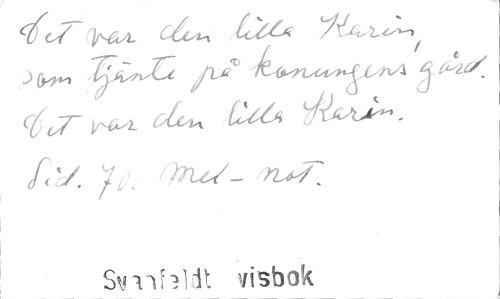 Det var den lilla Karin,
som tjänte på konungens gård.
Det var den lilla Karin.
Sid. 70. Mel-not.
Svanfeldt visbok